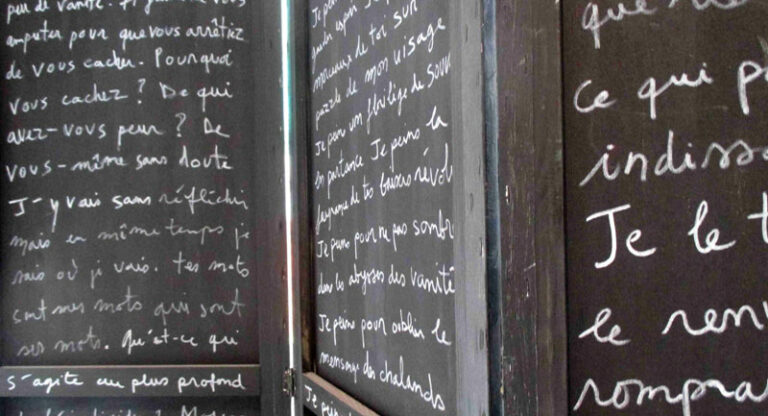 peu de vanité.
amputer pour que vous arrêtiez
de vous cacher. Pourquoi
vous cachez ? De qui
avez-vous peur ? De
vous-même sans doute
J'y vais sans réfléchir
mais en même temps je
sais où je vais. tes mots
sont mes mots qui sont
ses mots. Qu'est-ce qui
s'agite au plus profond
Je peins
morceaux de toi sur
puzzle de mon visage
Je peins un florilège de
en partance Je peins la
Je peins pour ne pas sombr
dans les abysses des vanité
Je peins pour oublier le
mensonge des chalands
Je peins
que
Ce qui p
indisso
Je le t
le renv
rompra